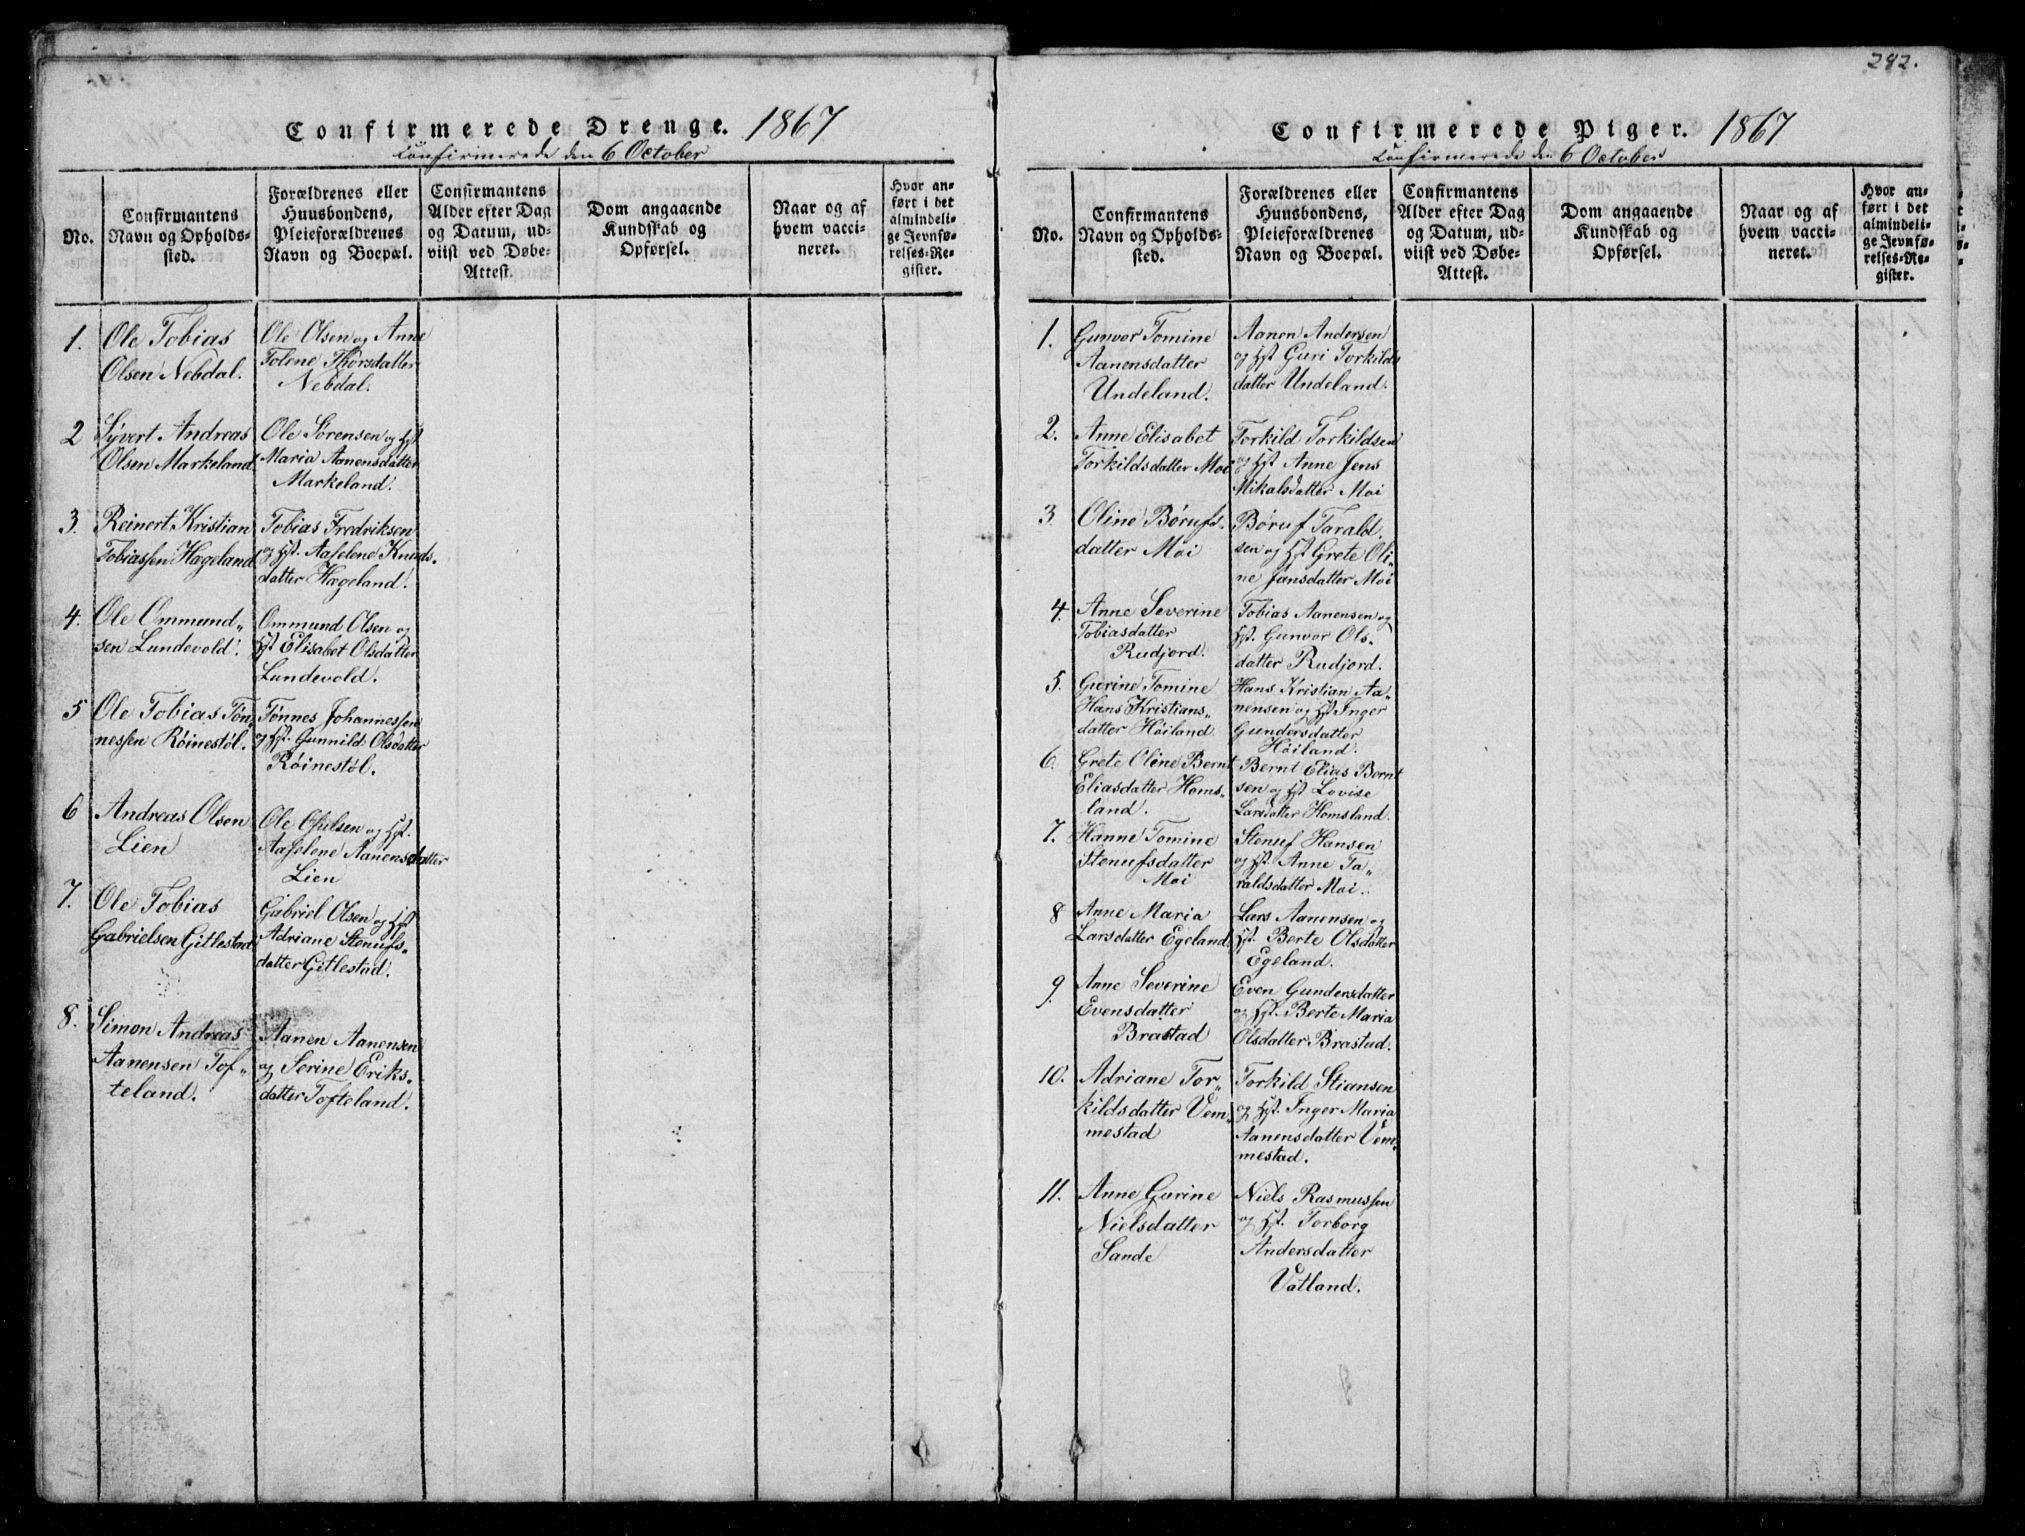 Confirmerede Drenge. 1867
Confirmerede den 6 October
No.
Confirmantens
Navn og Opholds-
sted.
Forældrenes eller
Huusbondens,
Pleieforældrenes
Navn og Boepæl.
Confirmantens
Alder efter Dag
og Datum, ud-
viist ved Døbe-
Attest.
Dom angaaende
Kundskab og
Opførsel.
Naar og af
hvem vacci-
neret.
Hvor an-
ført i det
almindeli-
ge Jevnfø-
relses-Re-
gister.
1. Ole Tobias
Olsen Nebdal.
Ole Olsen og Anne
Tolene Thorsdatter
Nebdal.
2 Syvert Andreas
Olsen Markeland
Ole Sørensen og Hst.
Maria Aanensdatter
Markeland.
3. Reinert Kristian
Tobiassen Hægeland
Tobias Fredriksen
og Hst. Aaselene Knuds-
datter Hægeland.
4. Ole Ommund-
sen Lundevold.
Ommund Olsen og
Hst Elisabet Olsdatter
Lundevold.
5 Ole Tobias Tøn-
nessen Røinestøl.
Tønnes Johannessen
og Hst. Gunnild Olsdatter
Røinestøl.
6 Andreas Olsen
Lien
Ole Olsen og Hst.
Aaselene Aanensdatter
Lien
7. Ole Tobias
Gabrielsen Gitlestad
Gabriel Olsen og Hst
Adriane Stenufs-
datter Gitlestad.
8. Simon Andreas
Aanensen Tof-
teland.
Aanen Aanensen
og Serine Eriks-
datter Tofteland.
282.
Confirmerede Piger. 1867
Confirmerede den 6 October
No.
Confirmantens
Navn og Opholds-
sted.
Forældrenes eller
Huusbondens,
Pleieforældrenes
Navn og Boepæl.
Confirmantens
Alder efter Dag
og Datum, ud-
viist ved Døbe-
Attest.
Dom angaaende
Kundskab og
Opførsel.
Naar og af
hvem vacci-
neret.
Hvor an-
ført i det
almindeli-
ge Jevnfø-
relses-Re-
gister.
1. Gunvor Tomine
Aanensdatter
Undeland.
Aanen Andersen
og Hst Guri Torkilds
datter Undeland.
2. Anne Elisabet
Torkildsdatter Moi
Torkild Torkildsen
og Hst Anne Jens
Mikalsdatter Moi
3 Oline Børufs-
datter Moi
Børuf Tarald-
sen og Hst Grete Oli-
ne Jansdatter Moi
4. Anne Severine
Tobiasdatter
Rudjord.
Tobias Aanensen og
Hst. Gunvor Ols-
datter Rudjord.
5. Gurine Tomine
Hans Kristians-
datter Høiland
Hans Kristian Aa-
nensen og Hst Inger
Gundersdatter
Høiland.
6. Grete Oline Bernt
Eliasdatter Homs-
land.
Bernt Elias Bernt
sen og Hst Lovise
Larsdatter Homsland.
7. Hanne Tomine
Stenufsdatter
Moi
Stenuf Hansen
og Hst. Anne Ta-
raldsdatter Moi.
8 Anne Maria
Larsdatter Egeland
Lars Aanensen og
Hst. Berte Olsdatter
Egeland.
9. Anne Severine
Evensdatter
Brastad
Even Gundersdatter
og Hst. Berte Maria
Olsdatter Brastad.
10. Adriane Tor-
kildsdatter Vem-
mestad
Torkild Stiansen
og Hst. Inger Maria
Aanensdatter Vem-
mestad.
11. Anne Gurine
Nielsdatter
Sande
Niels Rasmussen
og Hst. Torborg
Andersdatter
Vatland.